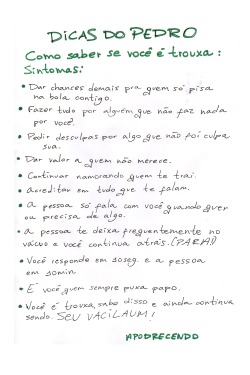 DICAS DO PEDRO
Como saber se você é trouxa:
Sintomas:
• Dar chances demais pra quem só pisa
na bola contigo.
• Fazer tudo por alguém que não faz nada
por você.
• Pedir desculpas por algo que não foi culpa
sua.
• Dar valor a quem não merece.
• Continuar namorando quem te trai.
• Acreditar em tudo que te falam.
• A pessoa só fala com você quando quer
ou precisa de algo.
• A pessoa te deixa frequentemente no
vácuo e você continua atrás. (PARA!)
• Você responde em 10seg. e a pessoa
em 30min.
• É você quem sempre puxa papo.
• Você é trouxa, sabe disso e ainda continua
sendo. SEU VACILAUM!
APODRECENDO